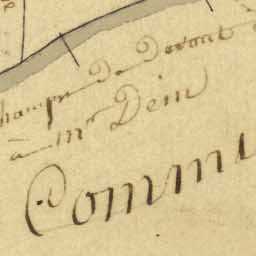 champ De devant
à Mr Dein
Commu